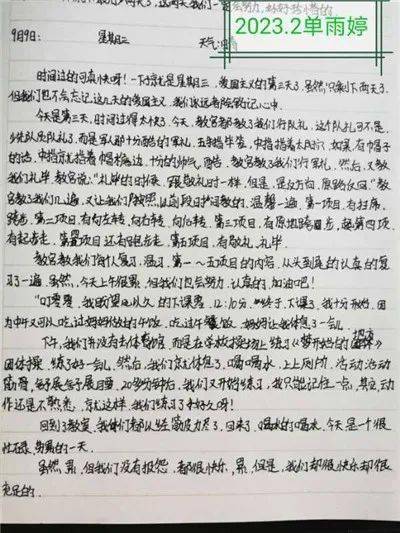 2023.2单雨婷
9月9日: 星期三 天气:晴
时间过的可真快呀!一下就是星期三,爱国主义的第三天了,虽然只剩下两天了,
但我们也不会忘记,这几天的爱国主义,我们永远者院铭记心中。
今天是第三天,时间过得太快了,今天,教官都教了我们行队礼,这个队礼可不是
少先队员队礼了,而是军人那十分酷的军礼,五指并拢,中指指着太阳穴,如果有帽子
的话,中指就指着帽檐边,十分的帅气,酷,教官教了我们行军礼,然后,又教
我们礼毕,教官说:"礼毕的时候,跟敬礼时一样,但是,是反方向,原路收回。"教官
教了我们几遍,又让我们按照以到段时间学习教的,温馨一遍,第一项目,有扫席、
跨步,第二项目,有向左转、向右转、向后转,第三项目,有原地踏步,起第四项
有起步走,第四项目还有跑步走,第五项目,有敬礼、礼毕。
教官教我们每人复习、温习,第一~五项目的内容,从头到尾的认真的复
习了一遍。虽然,今天上午很累,但我们也会努力、认真的,加油吧!
"叮零零",我盼望已久的下课零,12:10分,终于,下课了,我十分开始,因
为中午又可以吃过妈妈做的午饭,吃过午饭,妈妈让我休息了一会儿。
下午,我们并没有去体育馆,而是在学校操场上练习《梦开始的地方》
团体操,练了好一会儿,然后,我们就休息了,喝喝水,上上厕所,活动活动
筋骨,每子展每子展四重,20多分钟后,我们又开始练习,我只能记住一点,其它动
作还是不熟悉,就这样,我们练习了好久好久呀!
回到了教室,我们都从经筋疲力尽了,回来了,喝水的喝水,今天是一个很
忙碌、劳累的一天。
虽然,累,但我们没有报怨,都很快乐,累,但是,我们却很快乐却很
充足的。